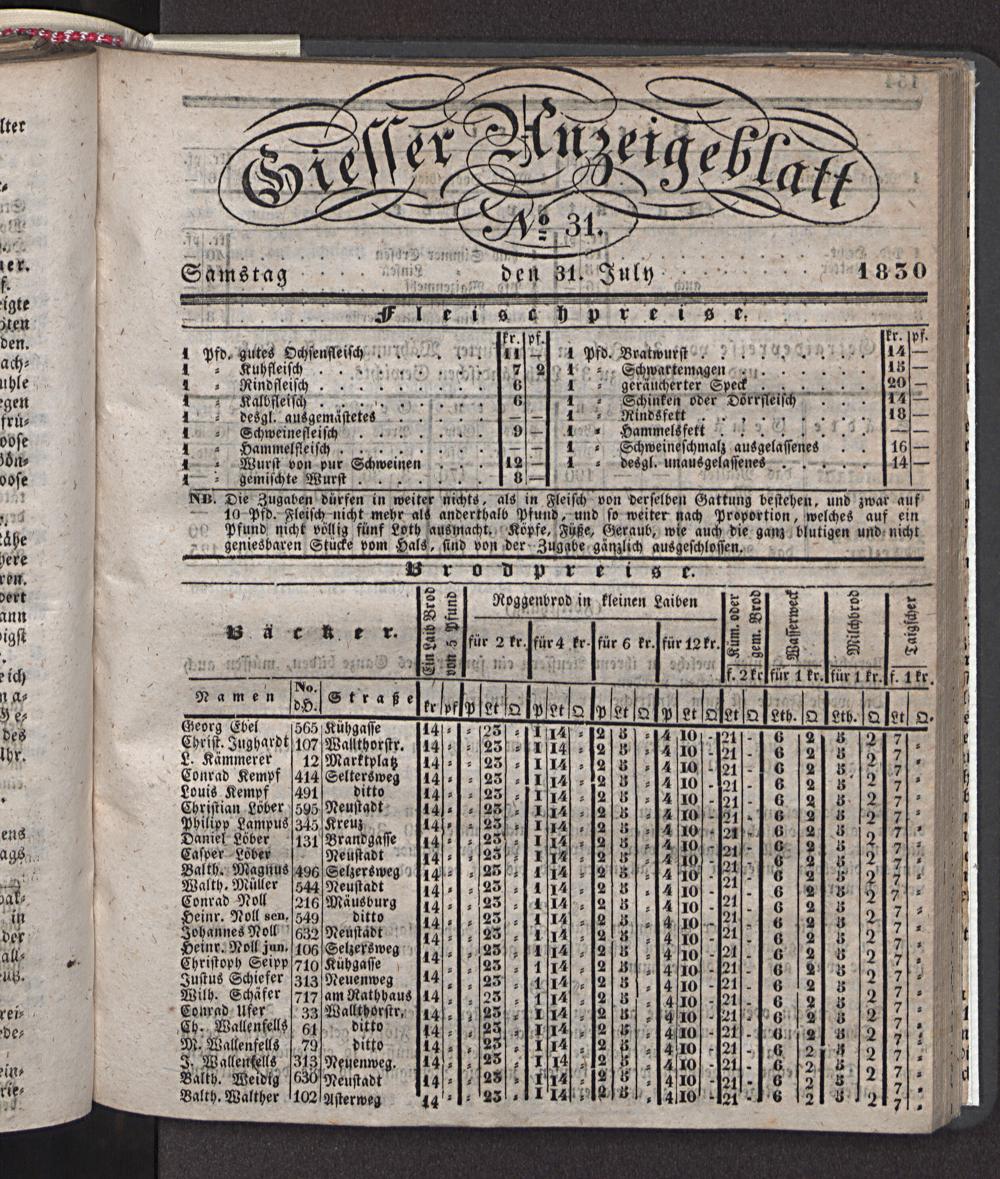 Giesser Anzeigeblatt
No 31.
Samstag den 31. July 1830
Fleischpreise.
kr. pf. kr. pf.
1 Pfd. gutes Ochsenfleisch 11 —
1 „ Kuhfleisch 7 2
1 „ Rindfleisch 6
1 „ Kalbfleisch 6
1 „ desgl. ausgemästetes — —
1 „ Schweinefleisch 9 —
1 „ Hammelfleisch — —
1 „ Wurst von pur Schweinen 12 —
1 „ gemischte Wurst 8 —
1 Pfd. Bratwurst 14 —
1 „ Schwartemagen 15 —
1 „ geräucherter Speck 20 —
1 „ Schinken oder Dörrfleisch 14 —
1 „ Rindsfett 18 —
1 „ Hammelsfett — —
1 „ Schweineschmalz ausgelassenes 16 —
1 „ desgl. unausgelassenes 14 —
NB. Die Zugaben dürfen in weiter nichts, als in Fleisch von derselben Gattung bestehen, und zwar auf
10 Pfd. Fleisch nicht mehr als anderthalb Pfund, und so weiter nach Proportion, welches auf ein
Pfund nicht völlig fünf Loth ausmacht. Köpfe, Füße, Geraub, wie auch die ganz blutigen und nicht
geniesbaren Stücke vom Hals, sind von der Zugabe gänzlich ausgeschlossen.
Brodpreise.
Bäcker.
Ein Laib Brod von 5 Pfund
Roggenbrod in kleinen Laiben
für 2 kr. für 4 kr. für 6 kr. für 12 kr.
Küm. oder gem. Brod f. 2 kr
Wasserweck für 1 kr.
Milchbrod für 1 kr.
Taigscher f. 1 kr.
Namen No. d.H. Straße kr pf P Lt Q P Lt Q P Lt Q P Lt Q Lt Q Lth. Q Lth. Q Lt Q.
Georg Ebel 565 Kühgasse 14 „ „ 23 „ 1 14 „ 2 5 „ 4 10 „ 21 „ 6 2 5 2 7 „
Christ. Jughardt 107 Wallthorstr. 14 „ „ 23 „ 1 14 „ 2 5 „ 4 10 „ 21 „ 6 2 5 2 7 „
L. Kämmerer 12 Marktplatz 14 „ „ 23 „ 1 14 „ 2 5 „ 4 10 „ 21 „ 6 2 5 2 7 „
Conrad Kempf 414 Seltersweg 14 „ „ 23 „ 1 14 „ 2 5 „ 4 10 „ 21 „ 6 2 5 2 7 „
Louis Kempf 491 ditto 14 „ „ 23 „ 1 14 „ 2 5 „ 4 10 „ 21 „ 6 2 5 2 7 „
Christian Löber 595 Neustadt 14 „ „ 23 „ 1 14 „ 2 5 „ 4 10 „ 21 „ 6 2 5 2 7 „
Philipp Lampus 345 Kreuz 14 „ „ 23 „ 1 14 „ 2 5 „ 4 10 „ 21 „ 6 2 5 2 7 „
Daniel Löber 131 Brandgasse 14 „ „ 23 „ 1 14 „ 2 5 „ 4 10 „ 21 „ 6 2 5 2 7 „
Casper Löber Neustadt 14 „ „ 23 „ 1 14 „ 2 5 „ 4 10 „ 21 „ 6 2 5 2 7 „
Balth. Magnus 496 Selzersweg 14 „ „ 23 „ 1 14 „ 2 5 „ 4 10 „ 21 „ 6 2 5 2 7 „
Walth. Müller 544 Neustadt 14 „ „ 23 „ 1 14 „ 2 5 „ 4 10 „ 21 „ 6 2 5 2 7 „
Conrad Noll 216 Mäusburg 14 „ „ 23 „ 1 14 „ 2 5 „ 4 10 „ 21 „ 6 2 5 2 7 „
Heinr. Noll sen. 549 ditto 14 „ „ 23 „ 1 14 „ 2 5 „ 4 10 „ 21 „ 6 2 5 2 7 „
Johannes Noll 632 Neustadt 14 „ „ 23 „ 1 14 „ 2 5 „ 4 10 „ 21 „ 6 2 5 2 7 „
Heinr. Noll jun. 106 Selzersweg 14 „ „ 23 „ 1 14 „ 2 5 „ 4 10 „ 21 „ 6 2 5 2 7 „
Christoph Seipp 710 Kühgasse 14 „ „ 23 „ 1 14 „ 2 5 „ 4 10 „ 21 „ 6 2 5 2 7 „
Justus Schiefer 313 Neuenweg 14 „ „ 23 „ 1 14 „ 2 5 „ 4 10 „ 21 „ 6 2 5 2 7 „
Wilh. Schäfer 717 am Rathhaus 14 „ „ 23 „ 1 14 „ 2 5 „ 4 10 „ 21 „ 6 2 5 2 7 „
Conrad Ufer 33 Wallthorstr. 14 „ „ 23 „ 1 14 „ 2 5 „ 4 10 „ 21 „ 6 2 5 2 7 „
Ch. Wallenfells 61 ditto 14 „ „ 23 „ 1 14 „ 2 5 „ 4 10 „ 21 „ 6 2 5 2 7 „
M. Wallenfells 79 ditto 14 „ „ 23 „ 1 14 „ 2 5 „ 4 10 „ 21 „ 6 2 5 2 7 „
J. Wallenfells 313 Neuenweg. 14 „ „ 23 „ 1 14 „ 2 5 „ 4 10 „ 21 „ 6 2 5 2 7 „
Balth. Weidig 630 Neustadt 14 „ „ 23 „ 1 14 „ 2 5 „ 4 10 „ 21 „ 6 2 5 2 7 „
Balth. Walther 102 Asterweg 14 „ „ 23 „ 1 14 „ 2 5 „ 4 10 „ 21 „ 6 2 5 2 7 „